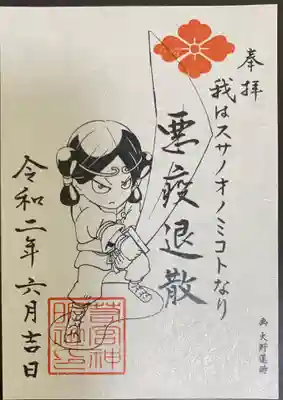 奉拝
我はスサノオノミコトなり
悪疫退散
令和二年六月吉日